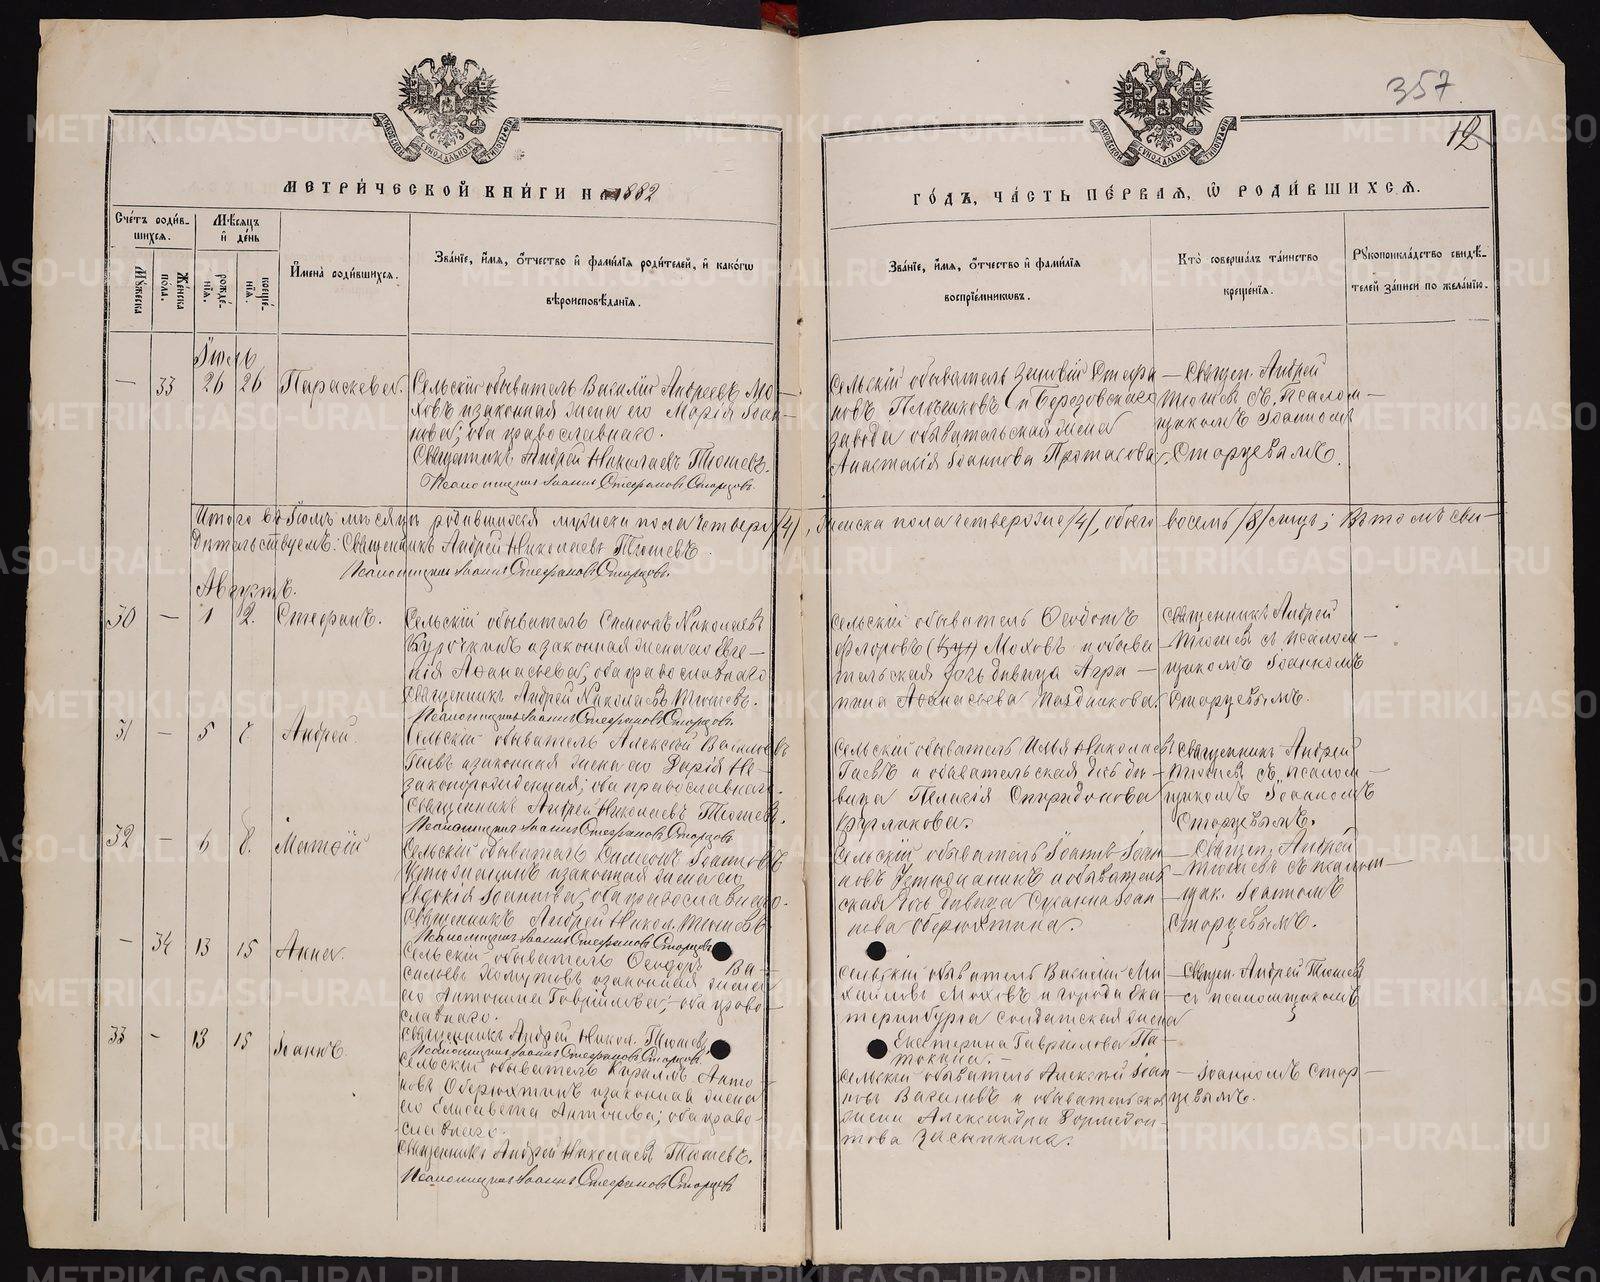 357
12
МЕТРИ́ЧЕСКОЙ КНИ́ГИ НА 1882
ГО́ДЪ, ЧА́СТЬ ПЕ́РВАЯ, Ѡ РОДИ́ВШИХСЯ.
Сче́тъ роди́вшихся.
Мужеска
Же́нска пола.
Мѣсяцъ и де́нь
рожде́нїя.
креще́нїя.
Имена̀ роди́вшихся.
Зва́нїе, и́мя, о́тчество и фами́лїя роди́телей, и како́гѡ
вѣроисповѣ́данїя.
Зва́нїе, и́мя, о́тчество и фами́лїя
воспрїе́мниковъ.
Кто̀ соверша́лъ та́инство
креще́нїя.
Рукоприкла́дство свидѣ́телей за́писи по жела́нїю.
Іюль
— 33 26 26 Параскева.
Сельскій обыватель Василій Андреевъ Мо-
ховъ и законная жена его Марія Іоан-
нова; оба православнаго.
Священникъ Андрей Николаевъ Тюшевъ.
Псаломщикъ Іоаннъ Стефановъ Старцевъ.
Сельскій обыватель Зиновій Стефа-
новъ Плотниковъ и Березовскаго
завода обывательская жена
Анастасія Іоаннова Протасова.
Священ. Андрей
Тюшевъ съ псалом-
щикомъ Іоанномъ
Старцевымъ.
Итого въ Іюлѣ мѣсяцѣ родившихся мужеска пола четверо /4/, женска пола четверо же /4/, обоего восемь /8/ лицъ; въ томъ сви-
дѣтельствуемъ: Священникъ Андрей Николаевъ Тюшевъ.
Псаломщикъ Іоаннъ Стефановъ Старцевъ.
Августъ.
30 — 1 2. Стефанъ.
Сельскій обыватель Симеонъ Николаевъ
Курочкинъ и законная жена его Евге-
нія Аѳанасьева, оба православнаго.
Священникъ Андрей Николаевъ Тюшевъ.
Псаломщикъ Іоаннъ Стефановъ Старцевъ.
Сельскій обыватель Ѳеодотъ
Флоровъ Моховъ и обыва-
тельская дочь девица Агра-
пина Аѳанасьева
Священникъ Андрей
Тюшевъ съ псалом-
щикомъ Іоанномъ
Старцевымъ.
31 — 5 7 Андрей
Сельскій обыватель Алексѣй Васильевъ
Гаевъ и законная жена его Дарія Не-
законорожденная; оба православнаго.
Священникъ Андрей Николаевъ Тюшевъ.
Псаломщикъ Іоаннъ Стефановъ Старцевъ
Сельскій обыватель Илья Николаевъ
Гаевъ и обывательская дочь дѣ-
вица Пелагія Спиридонова
Священникъ Андрей
Тюшевъ съ псалом-
щикомъ Іоанномъ
Старцевымъ.
32 — 6 8. Матѳій
Сельскій обыватель Симеонъ Іоанновъ
Устюжанинъ и законная жена его
Евдокія Іоаннова, оба православнаго.
Священникъ Андрей Никол. Тюшевъ.
Псаломщикъ Іоаннъ Стефановъ Старцевъ
Сельскій обыватель Іоаннъ Іоан-
новъ Устюжанинъ и обыватель-
ская дочь дѣвица Сусанна Іоан-
нова Оберюхтина.
Священ. Андрей
Тюшевъ съ псалом-
щик. Іоанномъ
Старцевымъ.
— 34 13 15 Анна.
Сельскій обыватель Ѳеодоръ Ва-
сильевъ Хомутовъ и законная жена
его Антонина Гавріилова; оба право-
славнаго.
Священникъ Андрей Никол. Тюшевъ
Псаломщикъ Іоаннъ Стефановъ Старцевъ.
Сельскій обыватель Василій Ми-
хайловъ Моховъ и города Ека-
теринбурга солдатская жена
Екатерина Гавріилова Па-
Священ. Андрей Тюшевъ
съ псаломщикомъ
33 — 13 15 Іоаннъ.
Сельскій обыватель Кириллъ Анто-
новъ Оберюхтинъ и законная жена
его Елисавета Антонова; оба право-
славнаго.
Священникъ Андрей Николаевъ Тюшевъ.
Псаломщикъ Іоаннъ Стефановъ Старцевъ
Сельскій обыватель Алексѣй Іоан-
новъ и обывательская
жена Александра
Засыпкина.
Іоанномъ Стар-
цевымъ.
METRIKI.GASO-URAL.RU